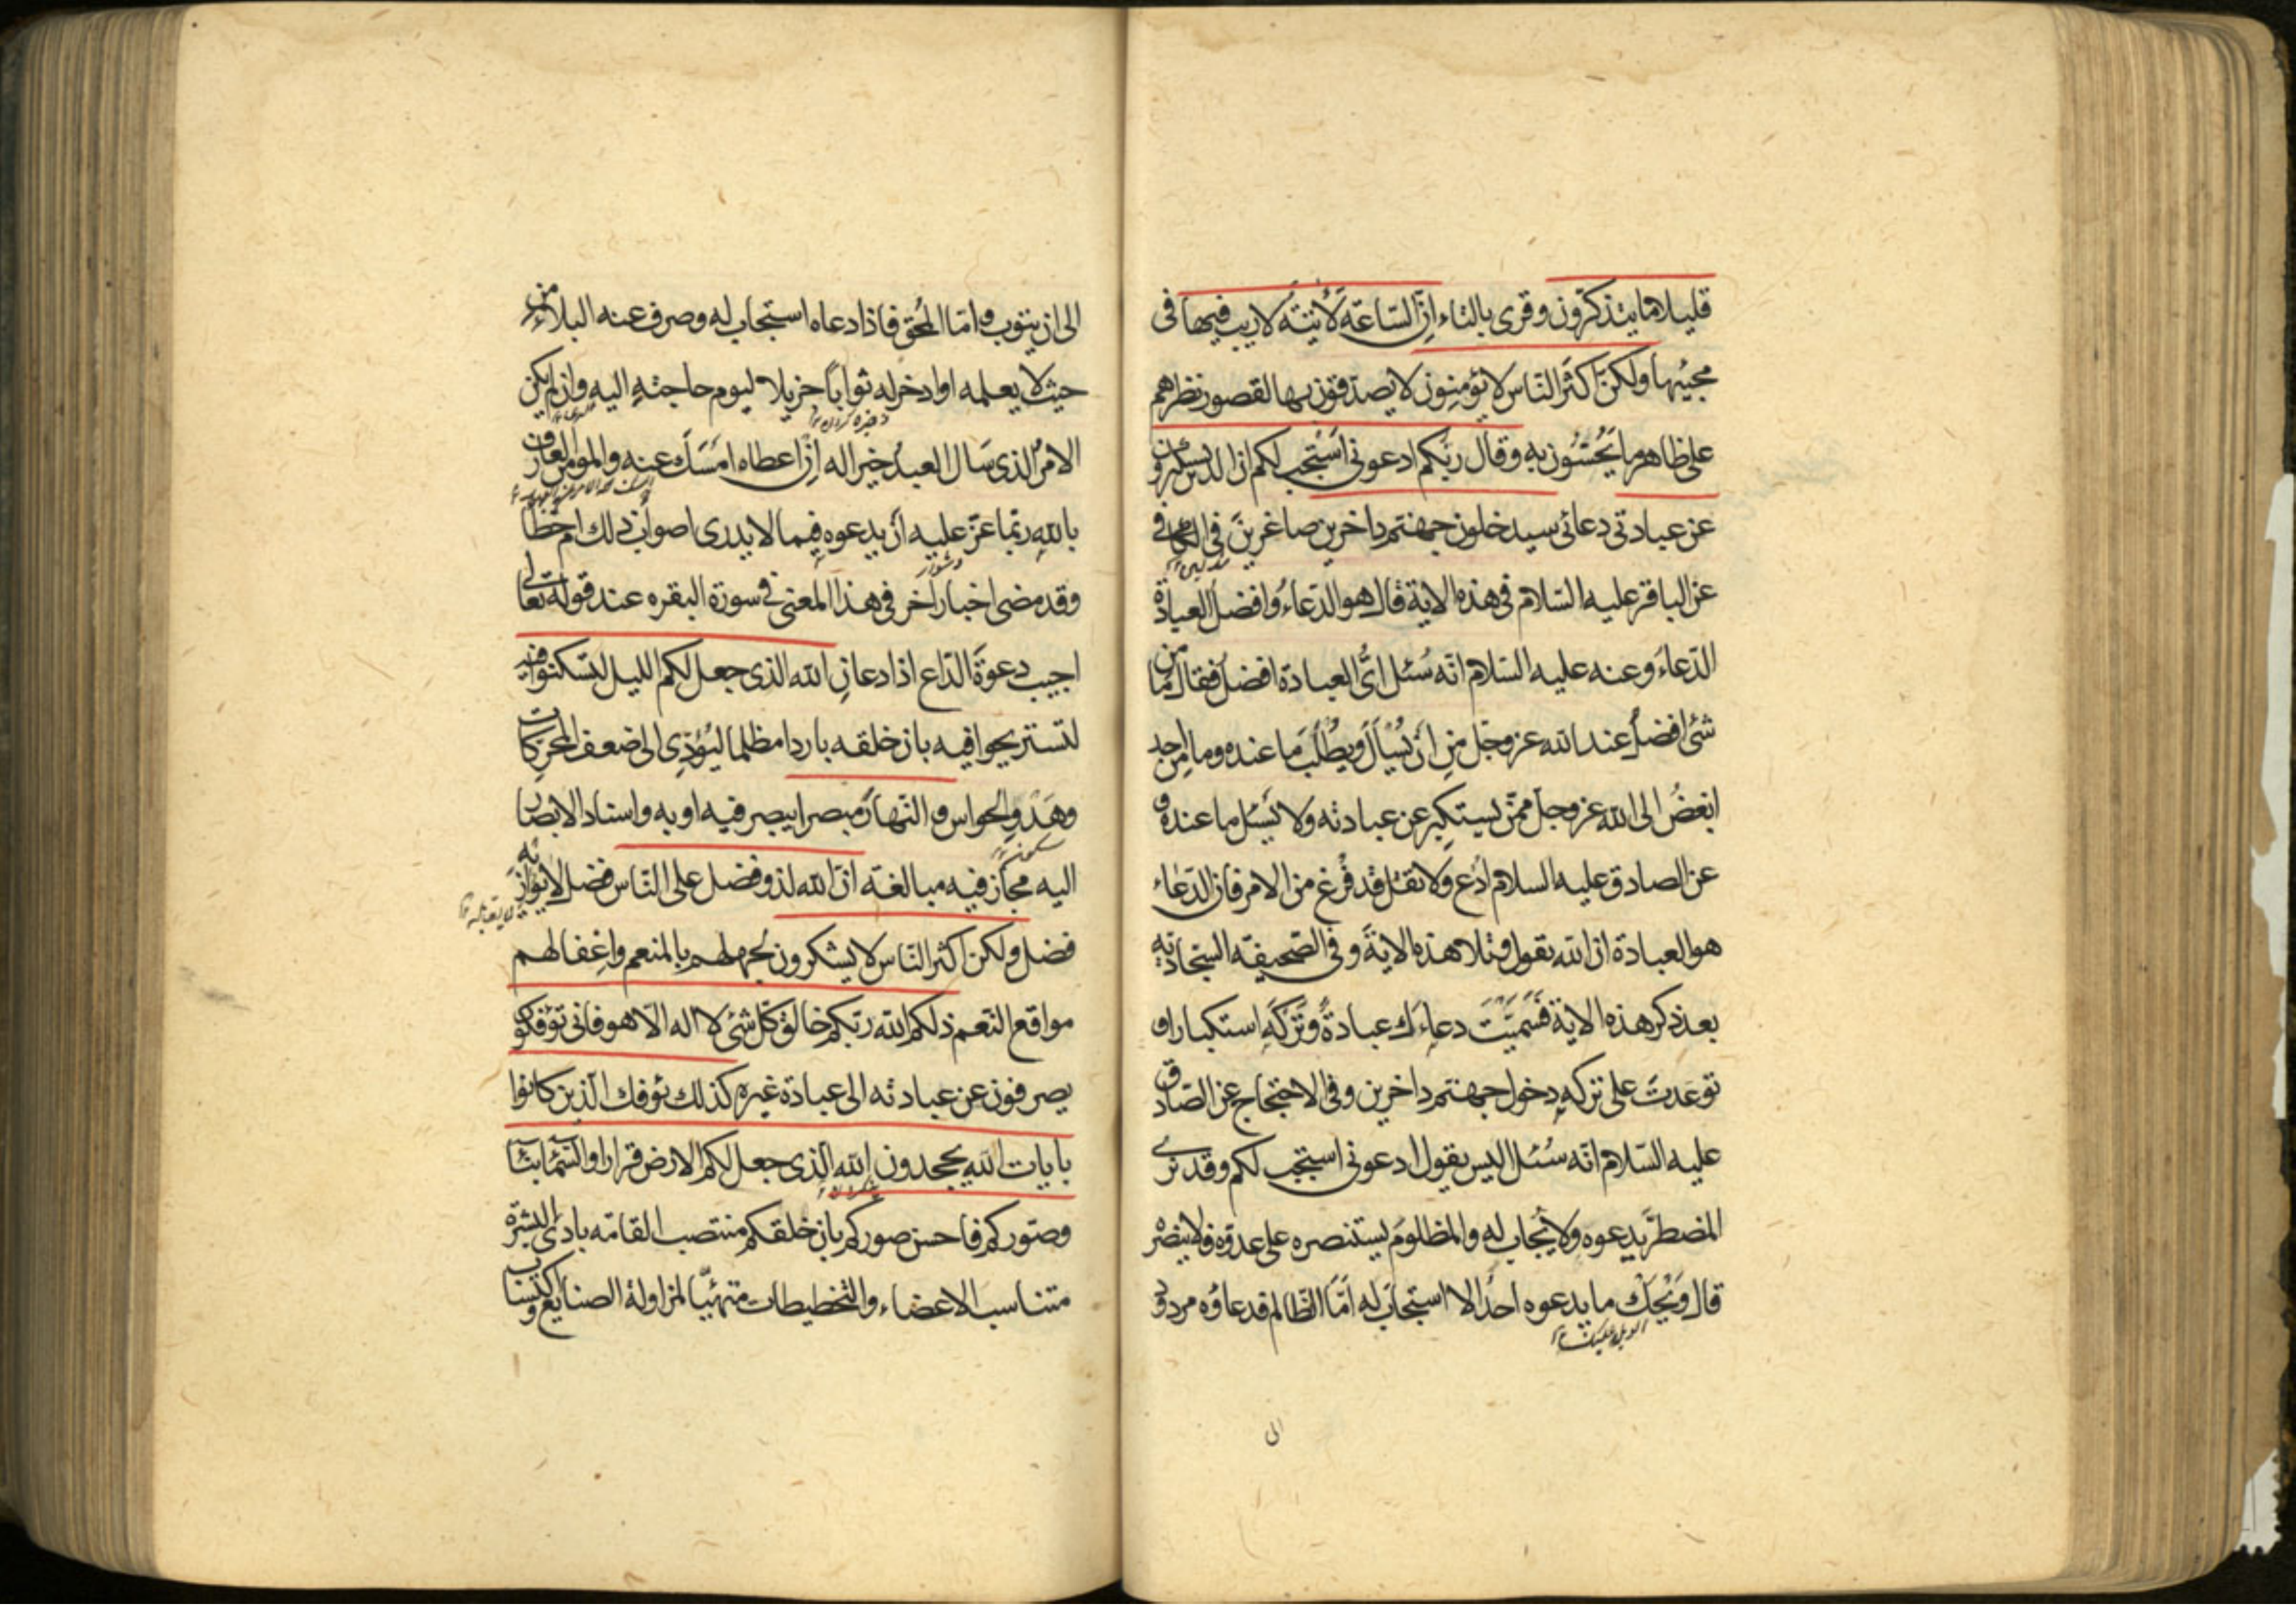 قليلا ما يتذكرون وقرى بالتاء اِنَّ السّاعة لَأتيةُ لا ريب فيها فى
مجيئها ولكنّ اكثَر النّاس لا يؤمنون لا يصدّقون بها لقصور نظرهم
على ظاهر ما يَحُسّون به وقال ربّكم ادعونى اَستجب لكم ان الذين يستكبرون
عن عبادتى دعائى سيدخلون جهنّم داخرين صاغرينَ فى الكافى
عن الباقر عليه السّلام فى هذه الاية قال هو الدّعاءُ وافضلُ العبادة
الدّعاءَ وعنه عليه السّلام انّه سُئل اىُّ العبادة افضلُ فقال ما من
شئ افضلُ عند الله عز وجل من اَن يُسْأَلَ ويُطْلَبَ ما عنده وما احد
ابغضُ الى الله عز وجل ممّن يستكبر عن عبادته ولا يسئل ما عنده و
عن الصادق عليه السلام اُدْع ولا تقل قد فُرِغ من الامر فان الدّعاء
هو العبادة ان الله يقول وتلا هذه الايةَ وفى الصّحيفة السّجادية
بعد ذكر هذه الاية فَسَمَّيْتَ دعاءَك عبادةً وتَرْكَهُ استكبارا و
توعدتَ على تركهِ دخول جهنّم داخرين وفى الاحتجاج عن الصّادق
عليه السّلام انّه سُئل اليس يقول ادعونى استجب لكم وقد نرى
المضطرَّ يدعوه ولا يُجاب له والمظلومَ يستنصره على عدوّه فلا ينصرُه
قال ويْحَك ما يدعوه احدٌ الا استجاب له امّا الظّالم فدعاؤه مردود
الى
الى ان يتوب وامّا المُحق فاذا دعاه استجاب له وصرف عنه البلاء من
حيث لا يعلمه او ادخر له ثواباً جزيلا ليوم حاجتهِ اليه وان لم يكن
ذخيره كردن
الامرُ الذى سَال العبدُ خيرا له اِن اعطاه امسَك عنه والمومن العارف
باللهِ ربّما عزّ عليه اَن يدعوه فيما لا يدرى اصواب ذلك ام خطأ
دشوار
وقد مضى اخبار اُخر فى هذا المعنى فى سورة البقره عند قوله تعالى
اجيب دعوةَ الدّاع اذا دعانِ الله الذى جعل لكم الليل لتسكنوا فيه
لتستريحوا فيه بان خلقه باردا مظلما ليؤدِى الى ضعف المحركات
وهَدْوِ الحواس والنّهارَ مبصرا يبصر فيه او به واسناد الابصار
سكون
اليه مجاز فيه مبالغة انّ الله لذو فضل على النّاس فضل لا يوازيه
فضل ولكن اكثر النّاس لا يشكرون لجهلهم بالمنعم واِغفالهم
مواقع النّعم ذلكم الله ربّكم خالق كلّ شئ لا اله الّا هو فانى تؤفكون
يصرفون عن عبادته الى عبادة غيره كذلك يؤفك الّذين كانوا
بايات الله يجحدون الله الّذى جعل لكم الارض قرارا والسّمآء بنآء
وصوّركم فاحسن صوركم بان خلقكم منتصب القامّه بادى البشرة
متناسب الاعضاء والتخطيطات متهيّئا لمزاولة الصنايع واكتساب